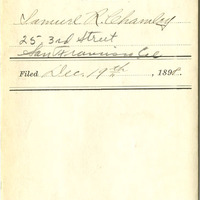 Samuel R. Chambly
25, 3rd Street
San Francisco Cal
Filed Dec. 19th, 1898.